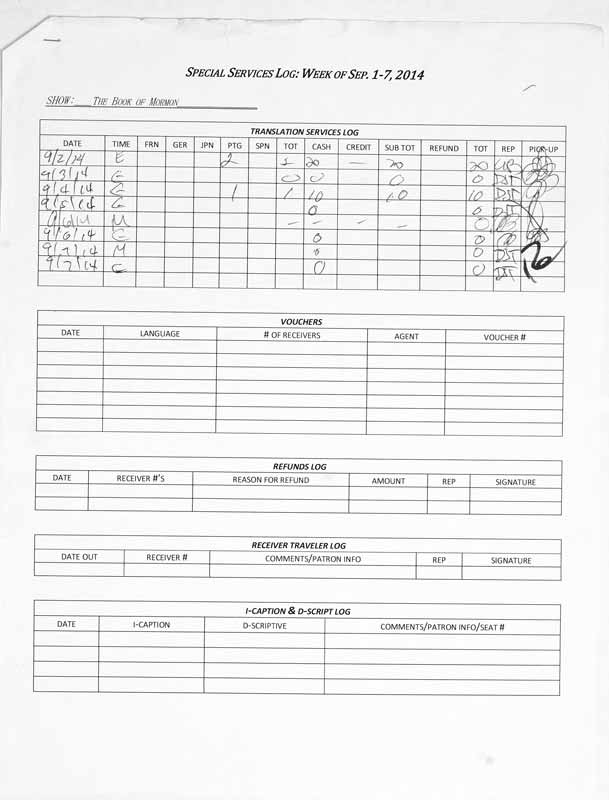 SPECIAL SERVICES LOG: WEEK OF SEP. 1-7, 2014
SHOW: THE BOOK OF MORMON
TRANSLATION SERVICES LOG
DATE TIME FRN GER JPN PTG SPN TOT CASH CREDIT SUB TOT REFUND TOT REP PICK-UP
9/2/14 E 2 1 20 — 20 20
9/3/14 E 0 0 0 0 DST
9/4/14 E 1 1 10 10 10 DST
9/5/14 E 0 0 DST
M – – – – 0
9/6/14 E 0 0
9/7/14 M 0 0 DST
9/7/14 E 0 0 DST
VOUCHERS
DATE LANGUAGE # OF RECEIVERS AGENT VOUCHER #
REFUNDS LOG
DATE RECEIVER #'S REASON FOR REFUND AMOUNT REP SIGNATURE
RECEIVER TRAVELER LOG
DATE OUT RECEIVER # COMMENTS/PATRON INFO REP SIGNATURE
I-CAPTION & D-SCRIPT LOG
DATE I-CAPTION D-SCRIPTIVE COMMENTS/PATRON INFO/SEAT #